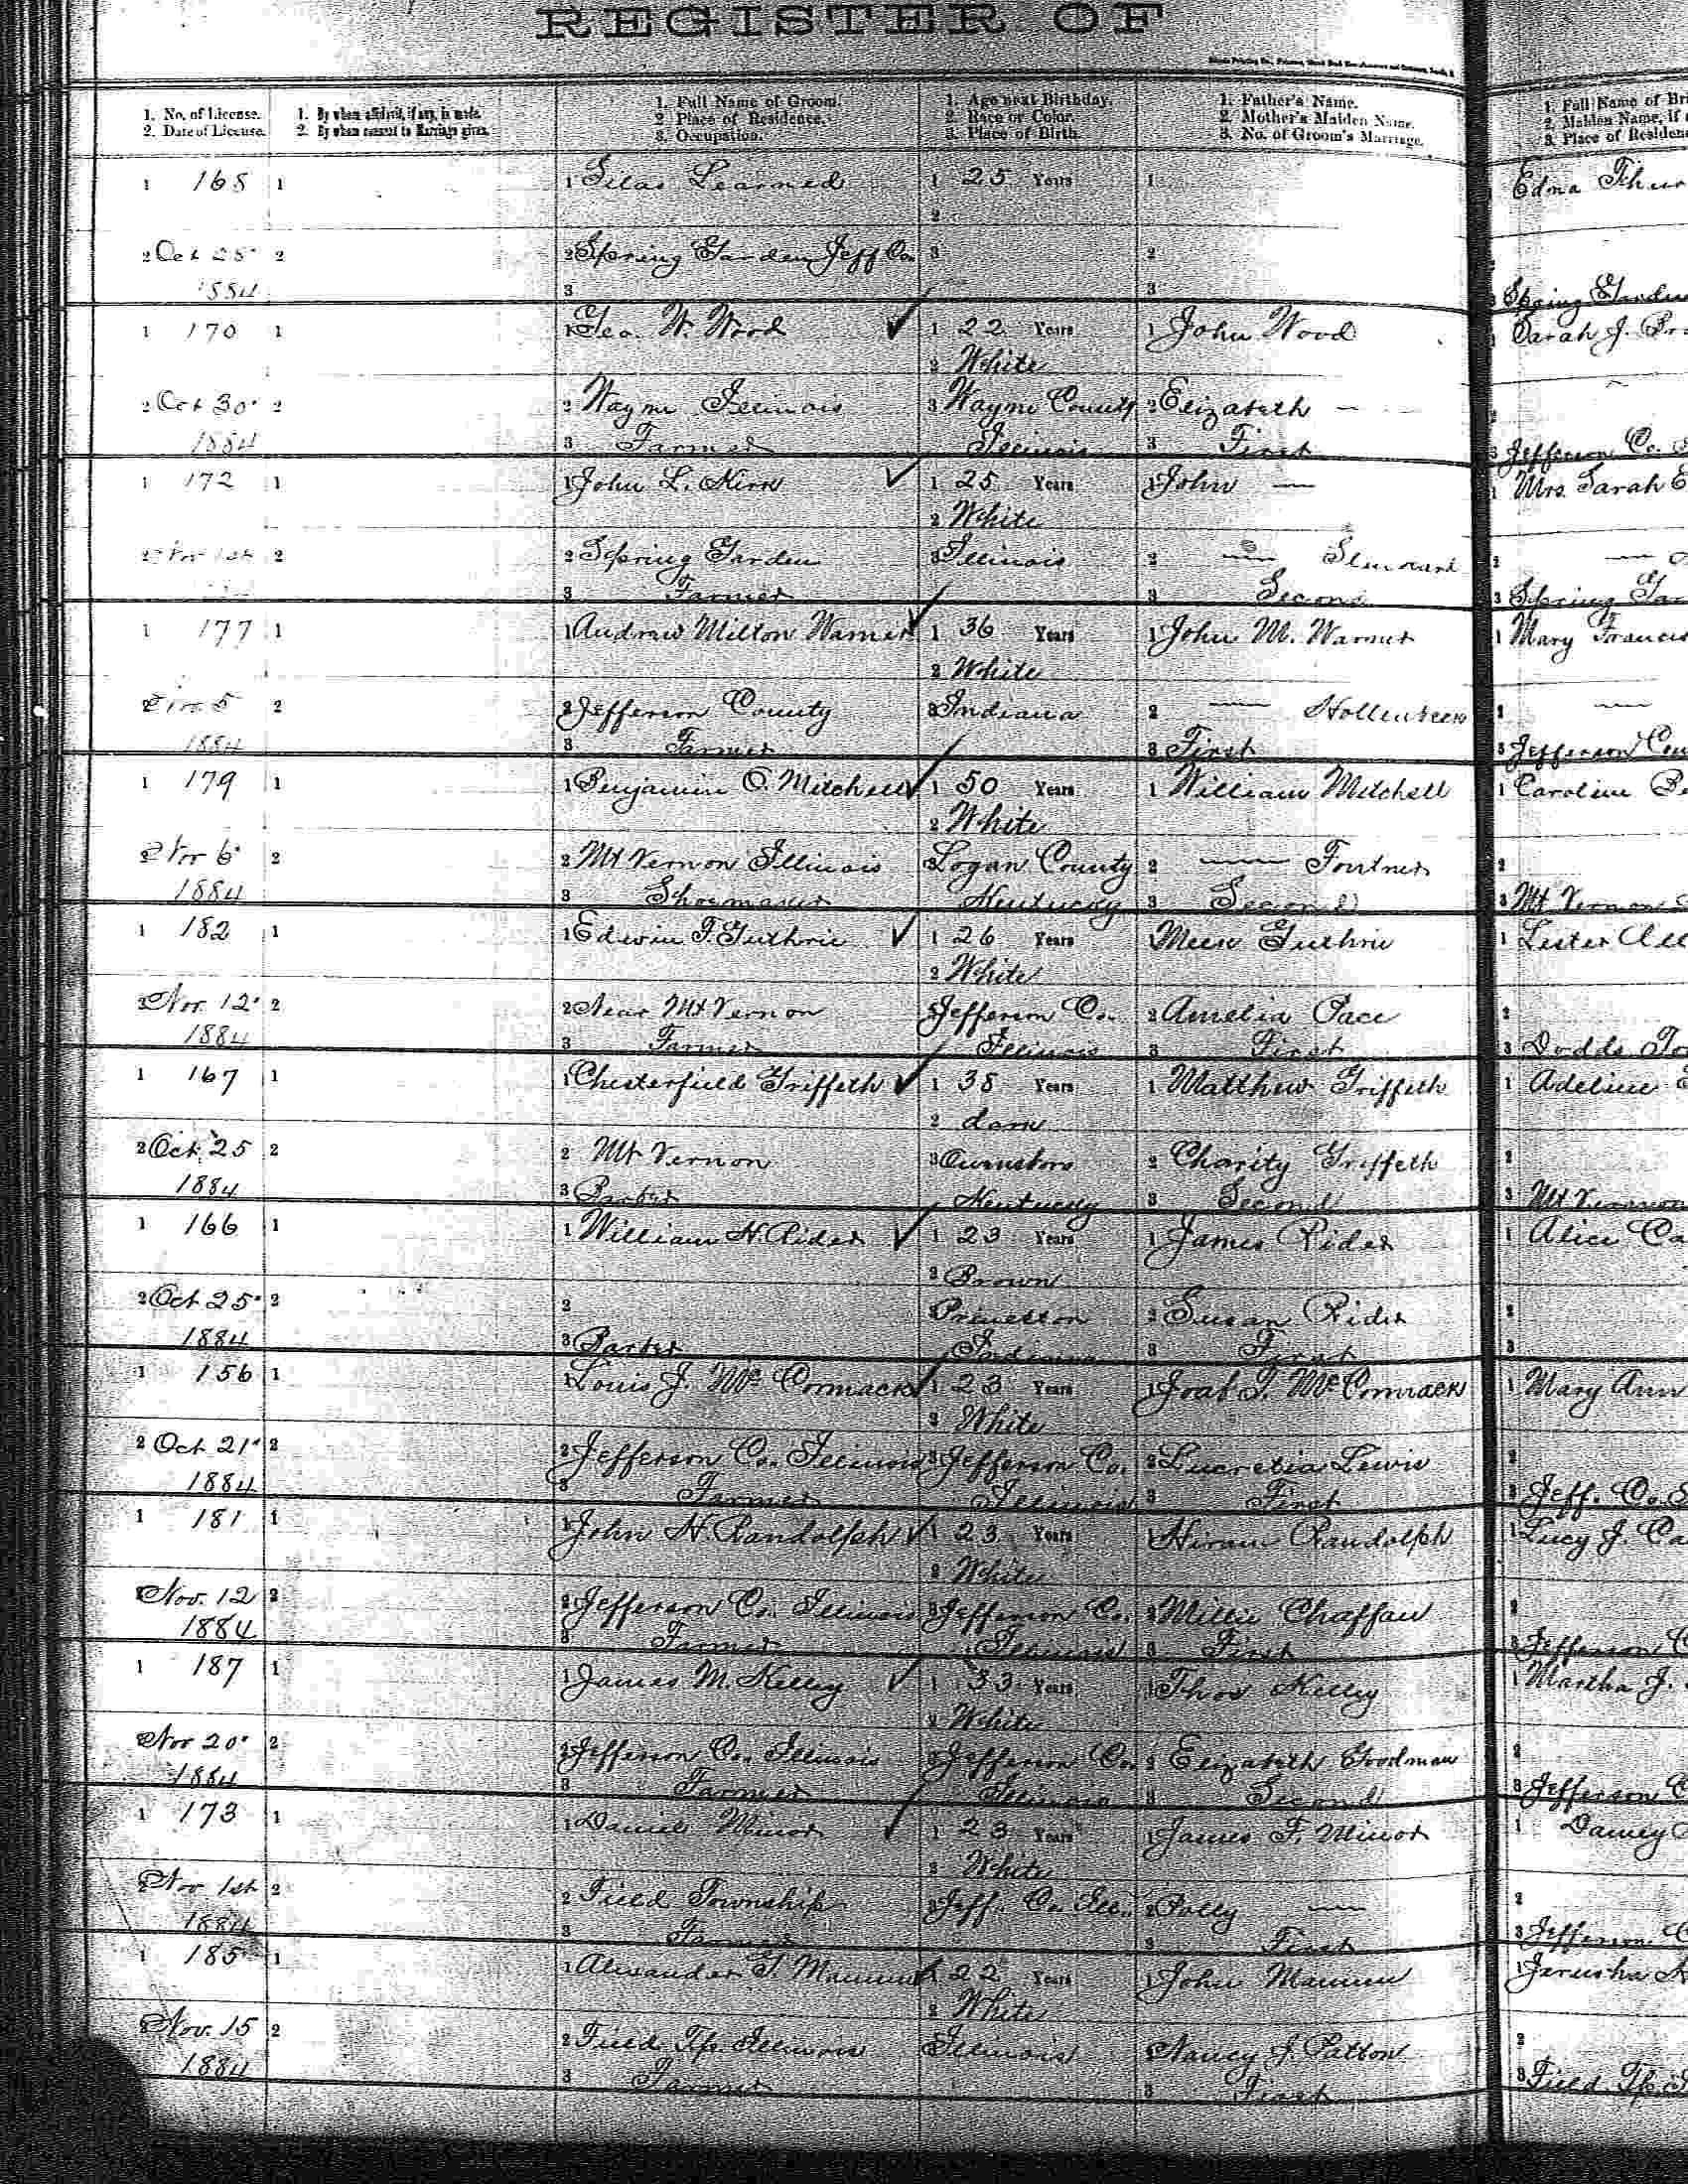 REGISTER OF
1. No. of License. 1. By whom affidavit, if any, is made. 1. Full Name of Groom. 1. Age next Birthday. 1. Father's Name. 1. Full Name of Bri
2. Date of License. 2. By whom consent to Marriage given. 2. Place of Residence. 2. Race or Color. 2. Mother's Maiden Name. 2. Maiden Name, if
3. Occupation. 3. Place of Birth. 3. No. of Groom's Marriage. 3. Place of Residen
1 168 1 1 Silas Learned 1 25 Years 1 Edna
2
2 Oct 25 2 2 Spring Garden Jeff Co. 3 2
1884 3 3 3 Spring Garden
1 170 1 1 Geo. W. Wood 1 22 Years 1 John Wood 1 Sarah J.
2 White
2 Oct 30 2 2 Wayne Illinois 3 Wayne County 2 Elizabeth — 2
1884 3 Farmer Illinois 3 First 3 Jefferson Co.
1 172 1 1 John L. 1 25 Years 1 John — 1 Mrs. Sarah
2 White
2 Nov 1st 2 2 Spring Garden 3 Illinois 2 — 2 —
3 Farmer 3 Second 3 Spring
1 177 1 1 Andrew Milton Warner 1 36 Years 1 John M. Warner 1 Mary Francis
2 White
2 Nov 5 2 2 Jefferson County 3 Indiana 2 — 2 —
1884 3 Farmer 3 First 3 Jefferson Cou
1 179 1 1 Benjamin O. Mitchell 1 50 Years 1 William Mitchell 1 Caroline
2 White
2 Nov 6 2 2 Mt Vernon Illinois 3 Logan County 2 — Fortner 2
1884 3 Shoemaker Kentucky 3 Second 3 Mt Vernon
1 182 1 1 Edwin F. Guthrie 1 26 Years 1 Guthrie 1 Lester
2 White
2 Nov. 12 2 2 Near Mt Vernon 3 Jefferson Co. 2 Amelia Pace 2
1884 3 Farmer Illinois 3 First 3 Dodds
1 167 1 1 Chesterfield Griffeth 1 38 Years 1 Matthew Griffeth 1 Adeline
2
2 Oct. 25 2 2 Mt Vernon 3 Owensboro 2 Charity Griffeth 2
1884 3 Barber Kentucky 3 Second 3 Mt Vernon
1 166 1 1 William H. Rider 1 23 Years 1 James Rider 1 Alice Ca
2 Brown
2 Oct 25 2 2 Princeton 2 Susan Rider 2
1884 3 Barber Indiana 3 First 3
1 156 1 1 Louis J. McCormack 1 23 Years 1 Joab T. McCormack 1 Mary Ann
2 White
2 Oct. 21 2 2 Jefferson Co. Illinois 3 Jefferson Co. 2 Lucretia Lewis 2
1884 3 Farmer Illinois 3 First 3 Jeff. Co.
1 181 1 1 John H. Randolph 1 23 Years 1 Hiram Randolph 1 Lucy J. Ca
2 White
2 Nov. 12 2 2 Jefferson Co. Illinois 3 Jefferson Co. 2 Millie 2
1884 3 Farmer Illinois 3 First 3 Jefferson C
1 187 1 1 James M. Kelley 1 33 Years 1 Thos Kelley 1 Martha J.
2 White
2 Nov 20 2 2 Jefferson Co. Illinois 3 Jefferson Co. 2 Elizabeth Goodman 2
1884 3 Farmer Illinois 3 Second 3 Jefferson C
1 173 1 1 Daniel Minor 1 23 Years 1 James F. Minor 1
2 White
2 Nov 1st 2 2 Field Township 3 Jeff. Co. Ill. 2 Polly — 2
1884 3 Farmer 3 First 3 Jefferson C
1 185 1 1 Alexander T. 1 22 Years 1 John 1 Jerusha
2 White
2 Nov. 15 2 2 Field Tp. Illinois Illinois 2 Nancy J. Patton 2
1884 3 Farmer 3 First 3 Field Tp.